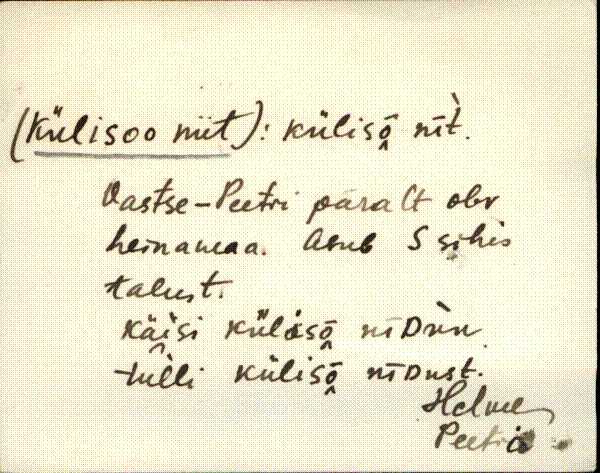 (Külisoo niit): külisō̭ nīt̀.
Vastse-Peetri päralt olev
heinamaa. Asub S sihis
talust.
käisi külisō̭ nīDùn
tulli külisō̭ nīDust.
Helve
Peetri